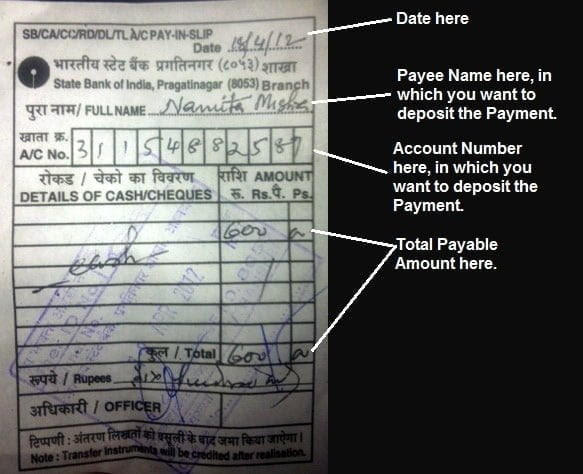 SB/CA/CC/RD/DL/TL A/C PAY-IN-SLIP
Date 18/4/12
भारतीय स्टेट बैंक प्रगतिनगर (८०५३) शाखा
State Bank of India, Pragatinagar (8053) Branch
पुरा नाम/ FULL NAME Namita Misha
खाता क्र.
A/C No. 3 1 1 5 4 8 8 2 5 8 7
रोकड / चेको का विवरण राशि AMOUNT
DETAILS OF CASH/CHEQUES रु. Rs. पै. Ps.
600
cash
कुल / Total 600
रूपये / Rupees Six Hundred
अधिकारी / OFFICER
टिप्पणी : अंतरण लिखतों को वसूली के बाद जमा किया जाऐगा।
Note : Transfer Instruments will be credited after realisation.
Date here
Payee Name here, in
which you want to
deposit the Payment.
Account Number
here, in which you
want to deposit the
Payment.
Total Payable
Amount here.